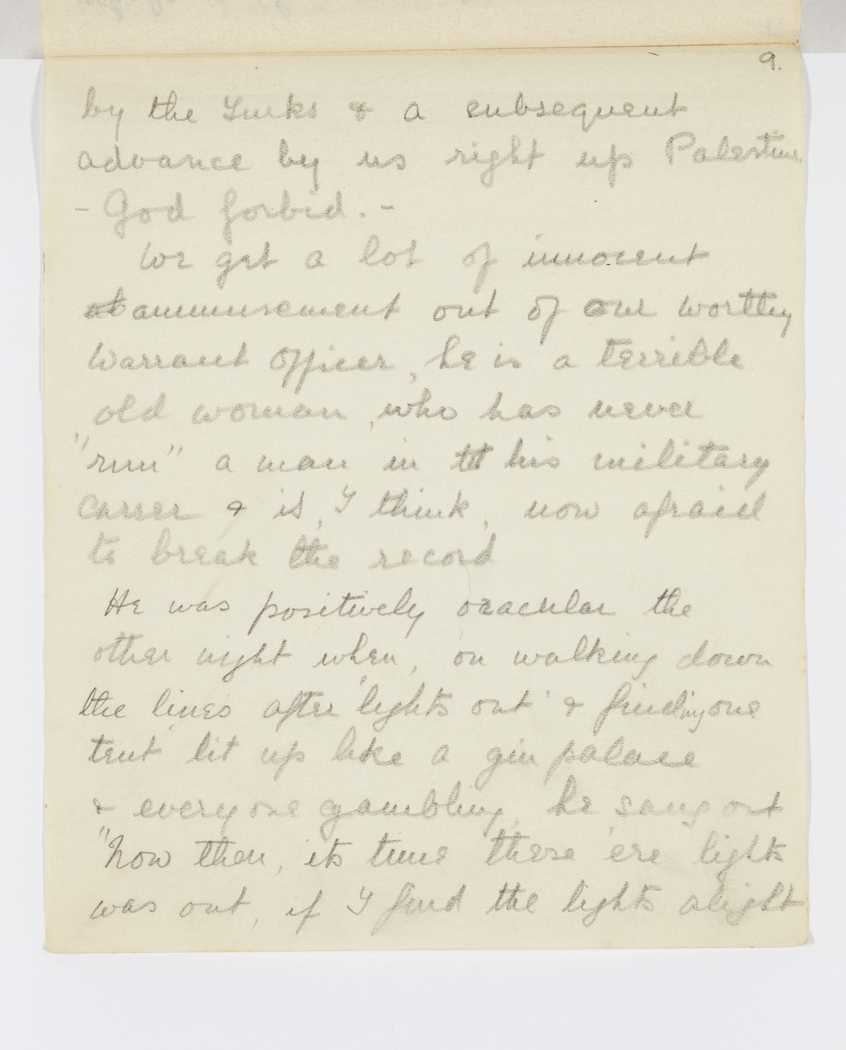 9.
by the Turks & a subsequent
advance by us right up Palestine
- God forbid. -
We get a lot of innocent
at ammusement out of our worthy
Warrant Officer, he is a terrible
old woman, who has never
"run" a man in tt his military
career & is, I think, now afraid
to break the record
He was positively oracular the
other night when, on walking down
the lines after 'lights out' & finding one
tent lit up like a gin palace
& everyone gambling, he sang out
"Now then, its time these 'ere lights
was out, if I find the lights alight